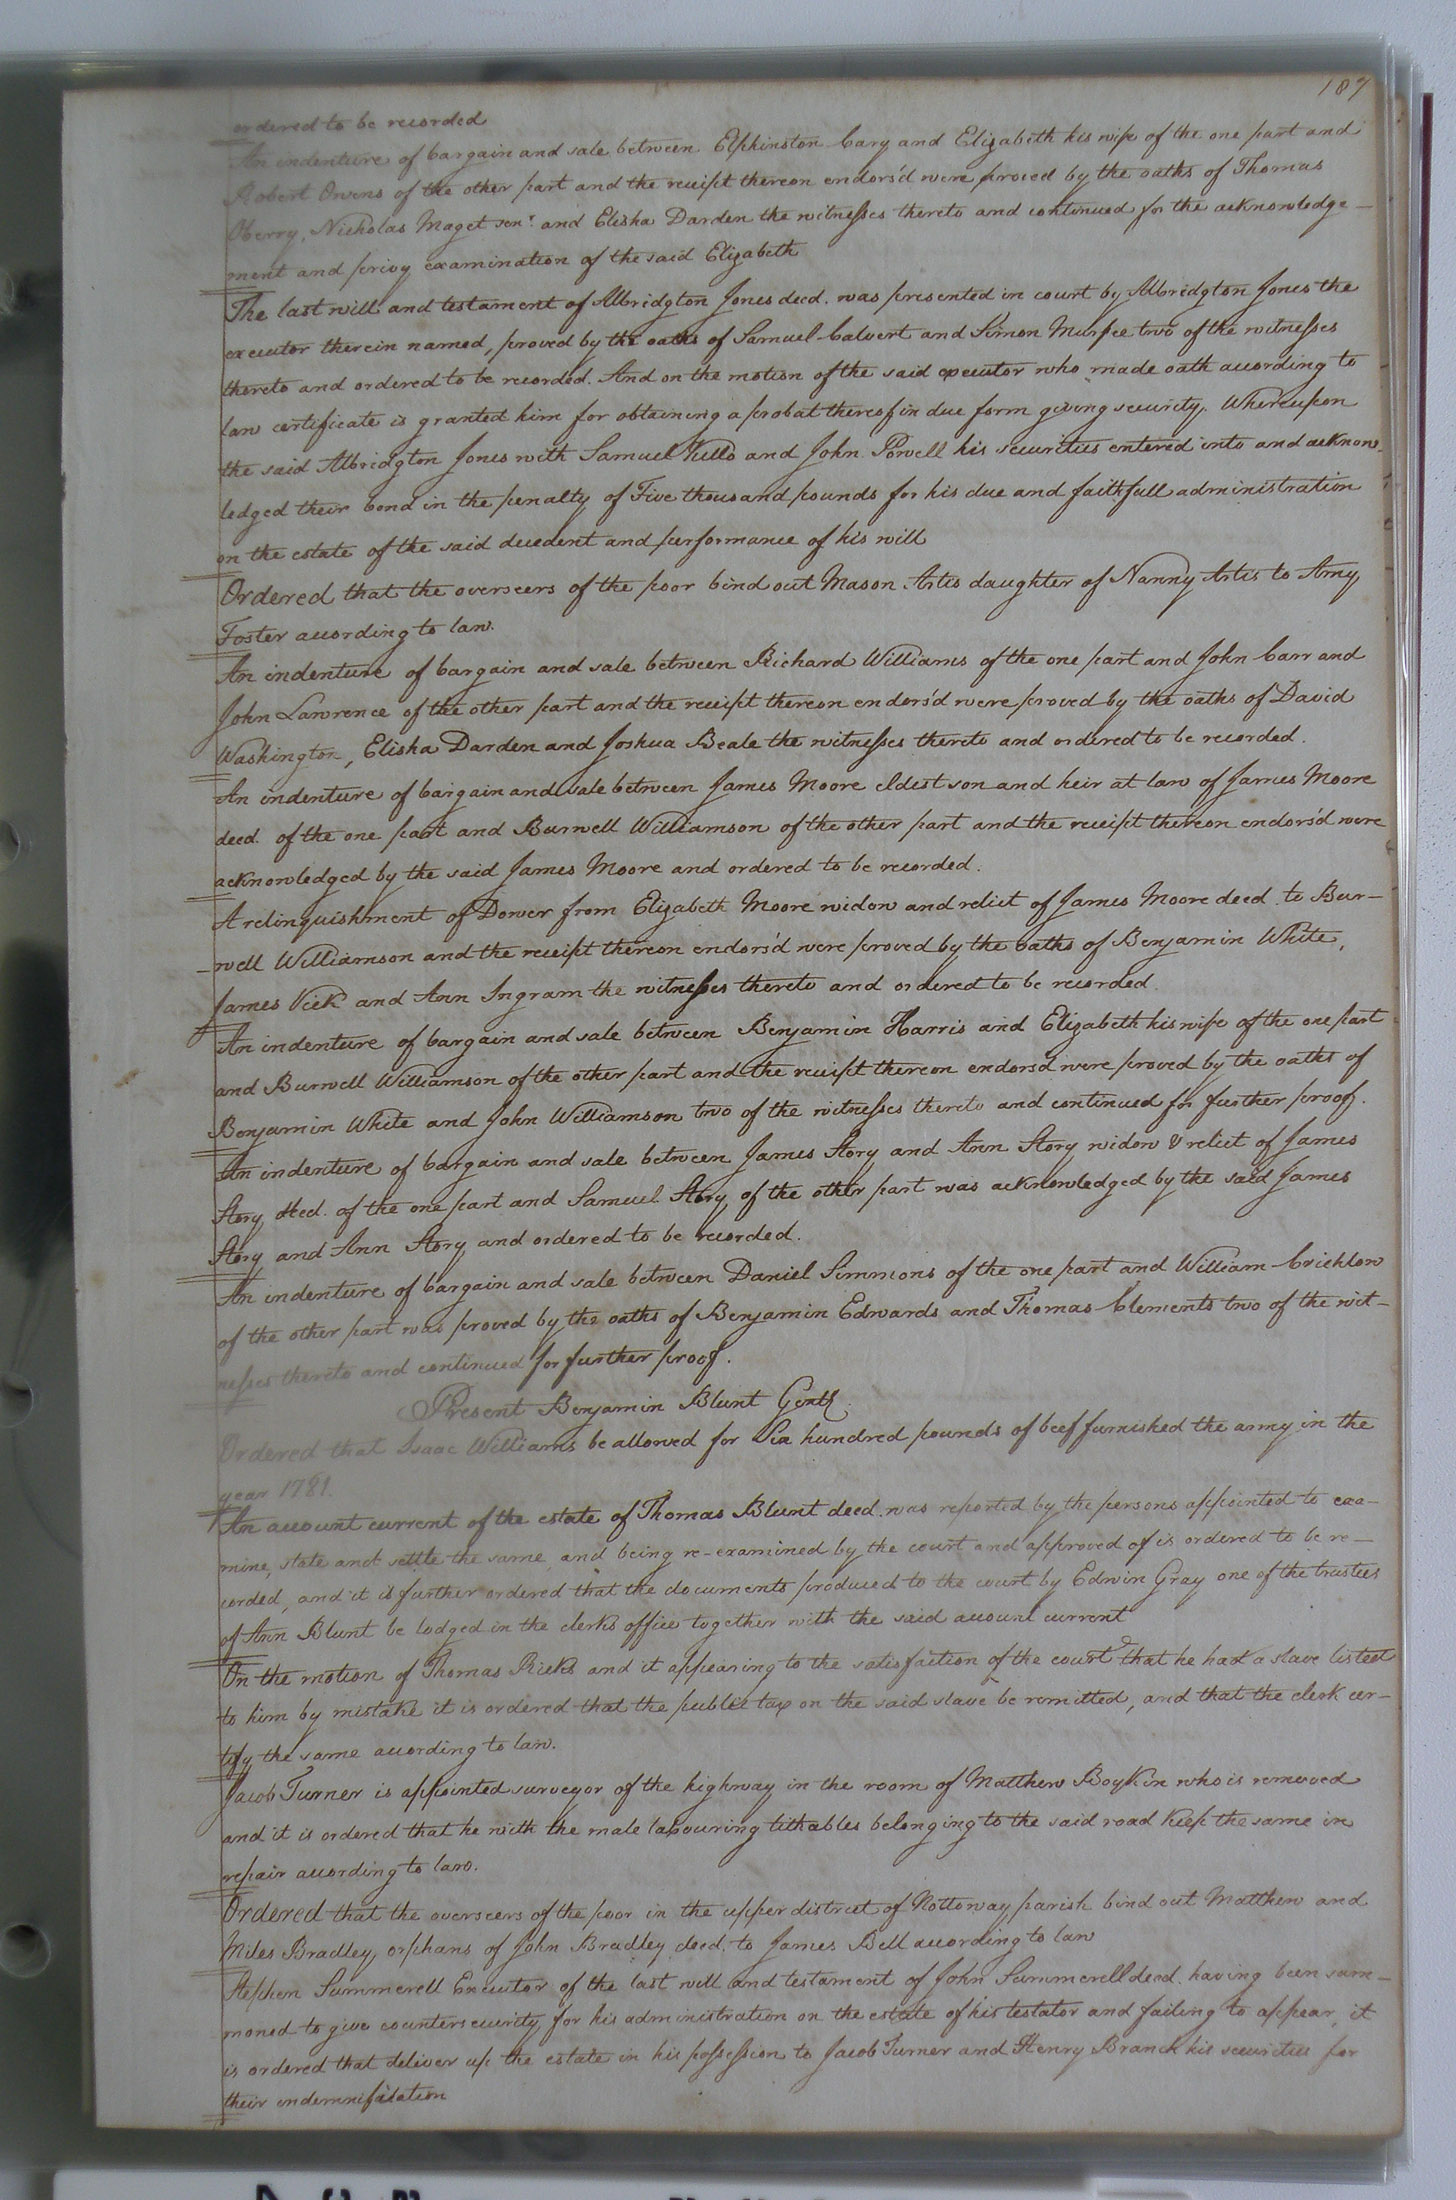 187
ordered to be recorded
An indenture of bargain and sale between Elphinston Cary and Elizabeth his wife of the one part and
Robert Owens of the other part and the receipt thereon endors'd were proved by the oaths of Thomas
Oberry, Nicholas Maget senr. and Elisha Darden the witnesses thereto and continued for the acknowledge-
ment and privy examination of the said Elizabeth
The last will and testament of Albridgton Jones deed. was presented in court by Albridgton Jones the
executor therein named, proved by the oaths of Samuel Calvert and Simon Murfee two of the witnesses
thereto and ordered to be recorded. And on the motion of the said executor who made oath according to
law certificate is granted him for obtaining a probat thereof in due form giving security. Whereupon
the said Albridgton Jones with Samuel Kello and John Powell his securities entered into and acknow-
ledged their bond in the penalty of Five thousand pounds for his due and faithfull administration
on the estate of the said decedent and performance of his will
Ordered that the overseers of the poor bind out Mason Artis daughter of Nanny Artis to Amy
Foster according to law.
An indenture of bargain and sale between Richard Williams of the one part and John Carr and
John Lawrence of the other part and the receipt thereon endors'd were proved by the oaths of David
Washington, Elisha Darden and Joshua Beale the witnesses thereto and ordered to be recorded.
An indenture of bargain and sale between James Moore eldest son and heir at law of James Moore
deed. of the one part and Burwell Williamson of the other part and the receipt thereon endors'd were
acknowledged by the said James Moore and ordered to be recorded.
A relinquishment of Dower from Elizabeth Moore widow and relict of James Moore deed. to Bur-
-well Williamson and the receipt thereon endors'd were proved by the oaths of Benjamin White,
James Vick and Ann Ingram the witnesses thereto and ordered to be recorded.
An indenture of bargain and sale between Benjamin Harris and Elizabeth his wife of the one part
and Burwell Williamson of the other part and the receipt thereon endorsd were proved by the oaths of
Benjamin White and John Williamson two of the witnesses thereto and continued for further proof.
An indenture of bargain and sale between James Story and Ann Story widow & relict of James
Story deed. of the one part and Samuel Story of the other part was acknowledged by the said James
Story and Ann Story and ordered to be recorded.
An indenture of bargain and sale between Daniel Simmons of the one part and William Crichlow
of the other part was proved by the oaths of Benjamin Edwards and Thomas Clements two of the wit-
nesses thereto and continued for further proof.
Present Benjamin Blunt Gentl.
Ordered that Isaac Williams be allowed for Six hundred pounds of beef furnished the army in the
year 1781.
An account current of the estate of Thomas Blunt deed. was reported by the persons appointed to exa-
mine, state and settle the same, and being re-examined by the court and approved of is ordered to be re-
corded, and it is further ordered that the documents produced to the court by Edwin Gray one of the trustees
of Ann Blunt be lodged in the clerks office together with the said account current
On the motion of Thomas Ricks and it appearing to the satisfaction of the court that he had a slave listed
to him by mistake it is ordered that the public tax on the said slave be remitted, and that the clerk cer-
tify the same according to law.
Jacob Turner is appointed surveyor of the highway in the room of Matthew Boykin who is removed
and it is ordered that he with the male labouring tithables belonging to the said road keep the same in
repair according to law.
Ordered that the overseers of the poor in the upper district of Nottoway parish bind out Matthew and
Miles Bradley, orphans of John Bradley deed. to James Bell according to law
Stephen Summerell Executor of the last will and testament of John Summerell deed. having been sum-
moned to give countersecurity for his administration on the estate of his testator and failing to appear, it
is ordered that deliver up the estate in his possession to Jacob Turner and Henry Branch his securities for
their indemnification